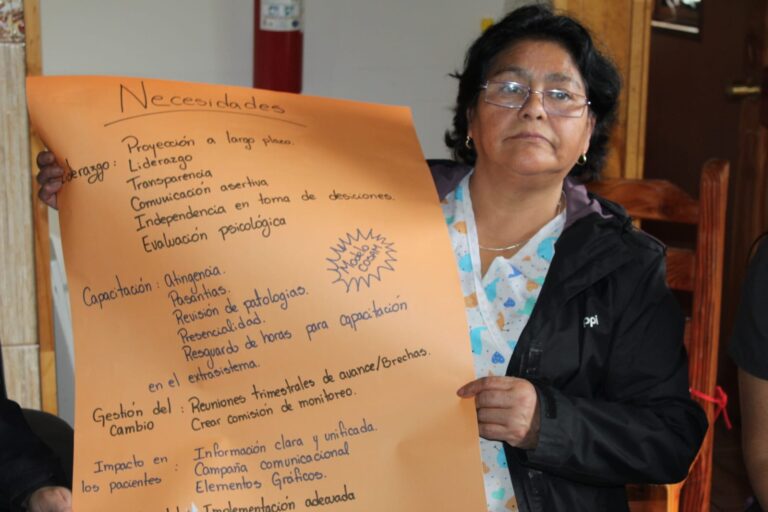 Necesidades
Liderazgo: Proyección a largo plazo.
Liderazgo
Transparencia
Comunicación asertiva
Independencia en toma de desiciones.
Evaluación psicológica
Modelo
COSAM
Capacitación: Atingencia.
Pasantías.
Revisión de patologías.
Presencialidad.
Resguardo de horas para capacitación
en el extrasistema.
Gestión del cambio : Reuniones trimestrales de avance/Brechas.
Crear comisión de monitoreo.
Impacto en los pacientes : Información clara y unificada.
Campaña comunicacional
Elementos Gráficos.
Implementación adecuada
ppi